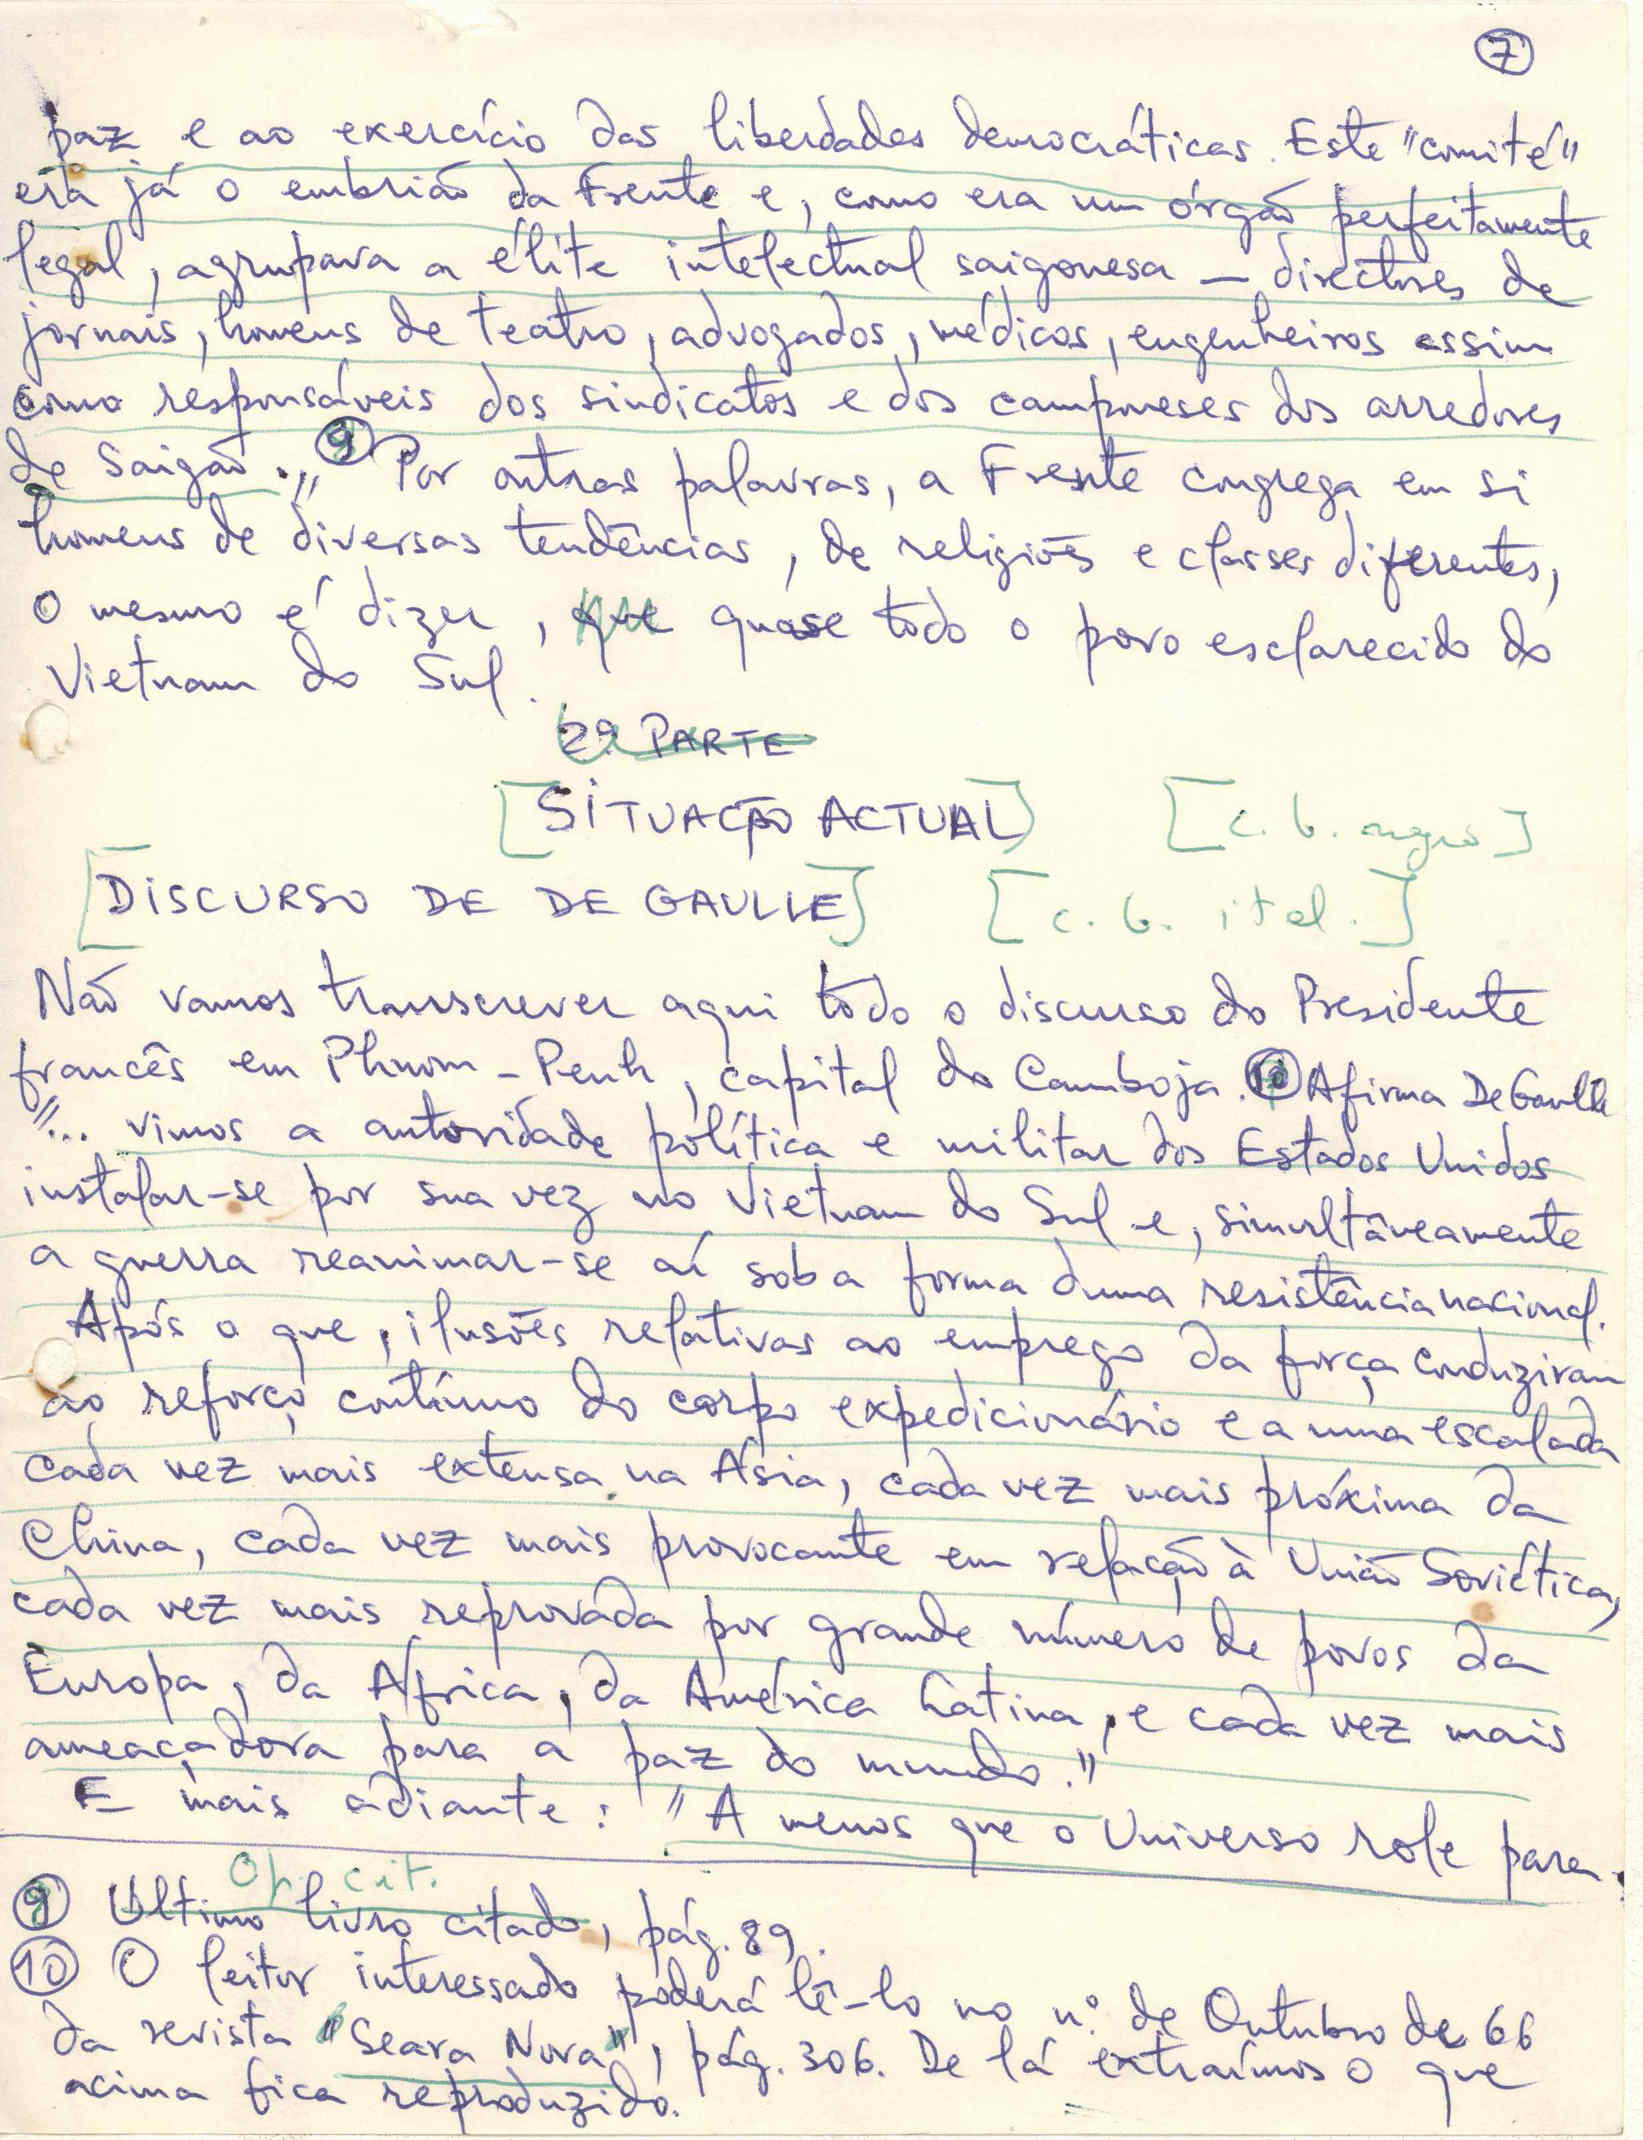 7
paz e ao exercício das liberdades democráticas. Este "comité"
era já o embrião da Frente e, como era um órgão perfeitamente
legal, agrupava a élite intelectual saigonesa — directores de
jornais, homens de teatro, advogados, médicos, engenheiros assim
como responsáveis dos sindicatos e dos camponeses dos arredores
de Saigão." 9 Por outras palavras, a Frente congrega em si
homens de diversas tendências, de religiões e classes diferentes,
o mesmo é dizer, que quase todo o povo esclarecido do
Vietnam do Sul.
2ª PARTE
[SITUAÇÃO ACTUAL] [c. b. negro]
[DISCURSO DE DE GAULLE] [c. b. ital.]
Não vamos transcrever aqui todo o discurso do Presidente
francês em Phnom-Penh, capital do Camboja. 10 Afirma De Gaulle
"... vimos a autoridade política e militar dos Estados Unidos
instalar-se por sua vez no Vietnam do Sul e, simultâneamente
a guerra reanimar-se aí sob a forma duma resistência nacional.
Após o que, ilusões relativas ao emprego da força conduziram
ao reforço contínuo do corpo expedicionário e a uma escalada
cada vez mais extensa na Ásia, cada vez mais próxima da
China, cada vez mais provocante em relação à União Soviética,
cada vez mais reprovada por grande número de povos da
Europa, da África, da América Latina, e cada vez mais
ameaçadora para a paz do mundo."
E mais adiante: "A menos que o Universo role para
Op. cit.
9 Último livro citado, pág. 89.
10 O leitor interessado poderá lê-lo no nº de Outubro de 66
da revista "Seara Nova", pág. 306. De lá extraímos o que
acima fica reproduzido.